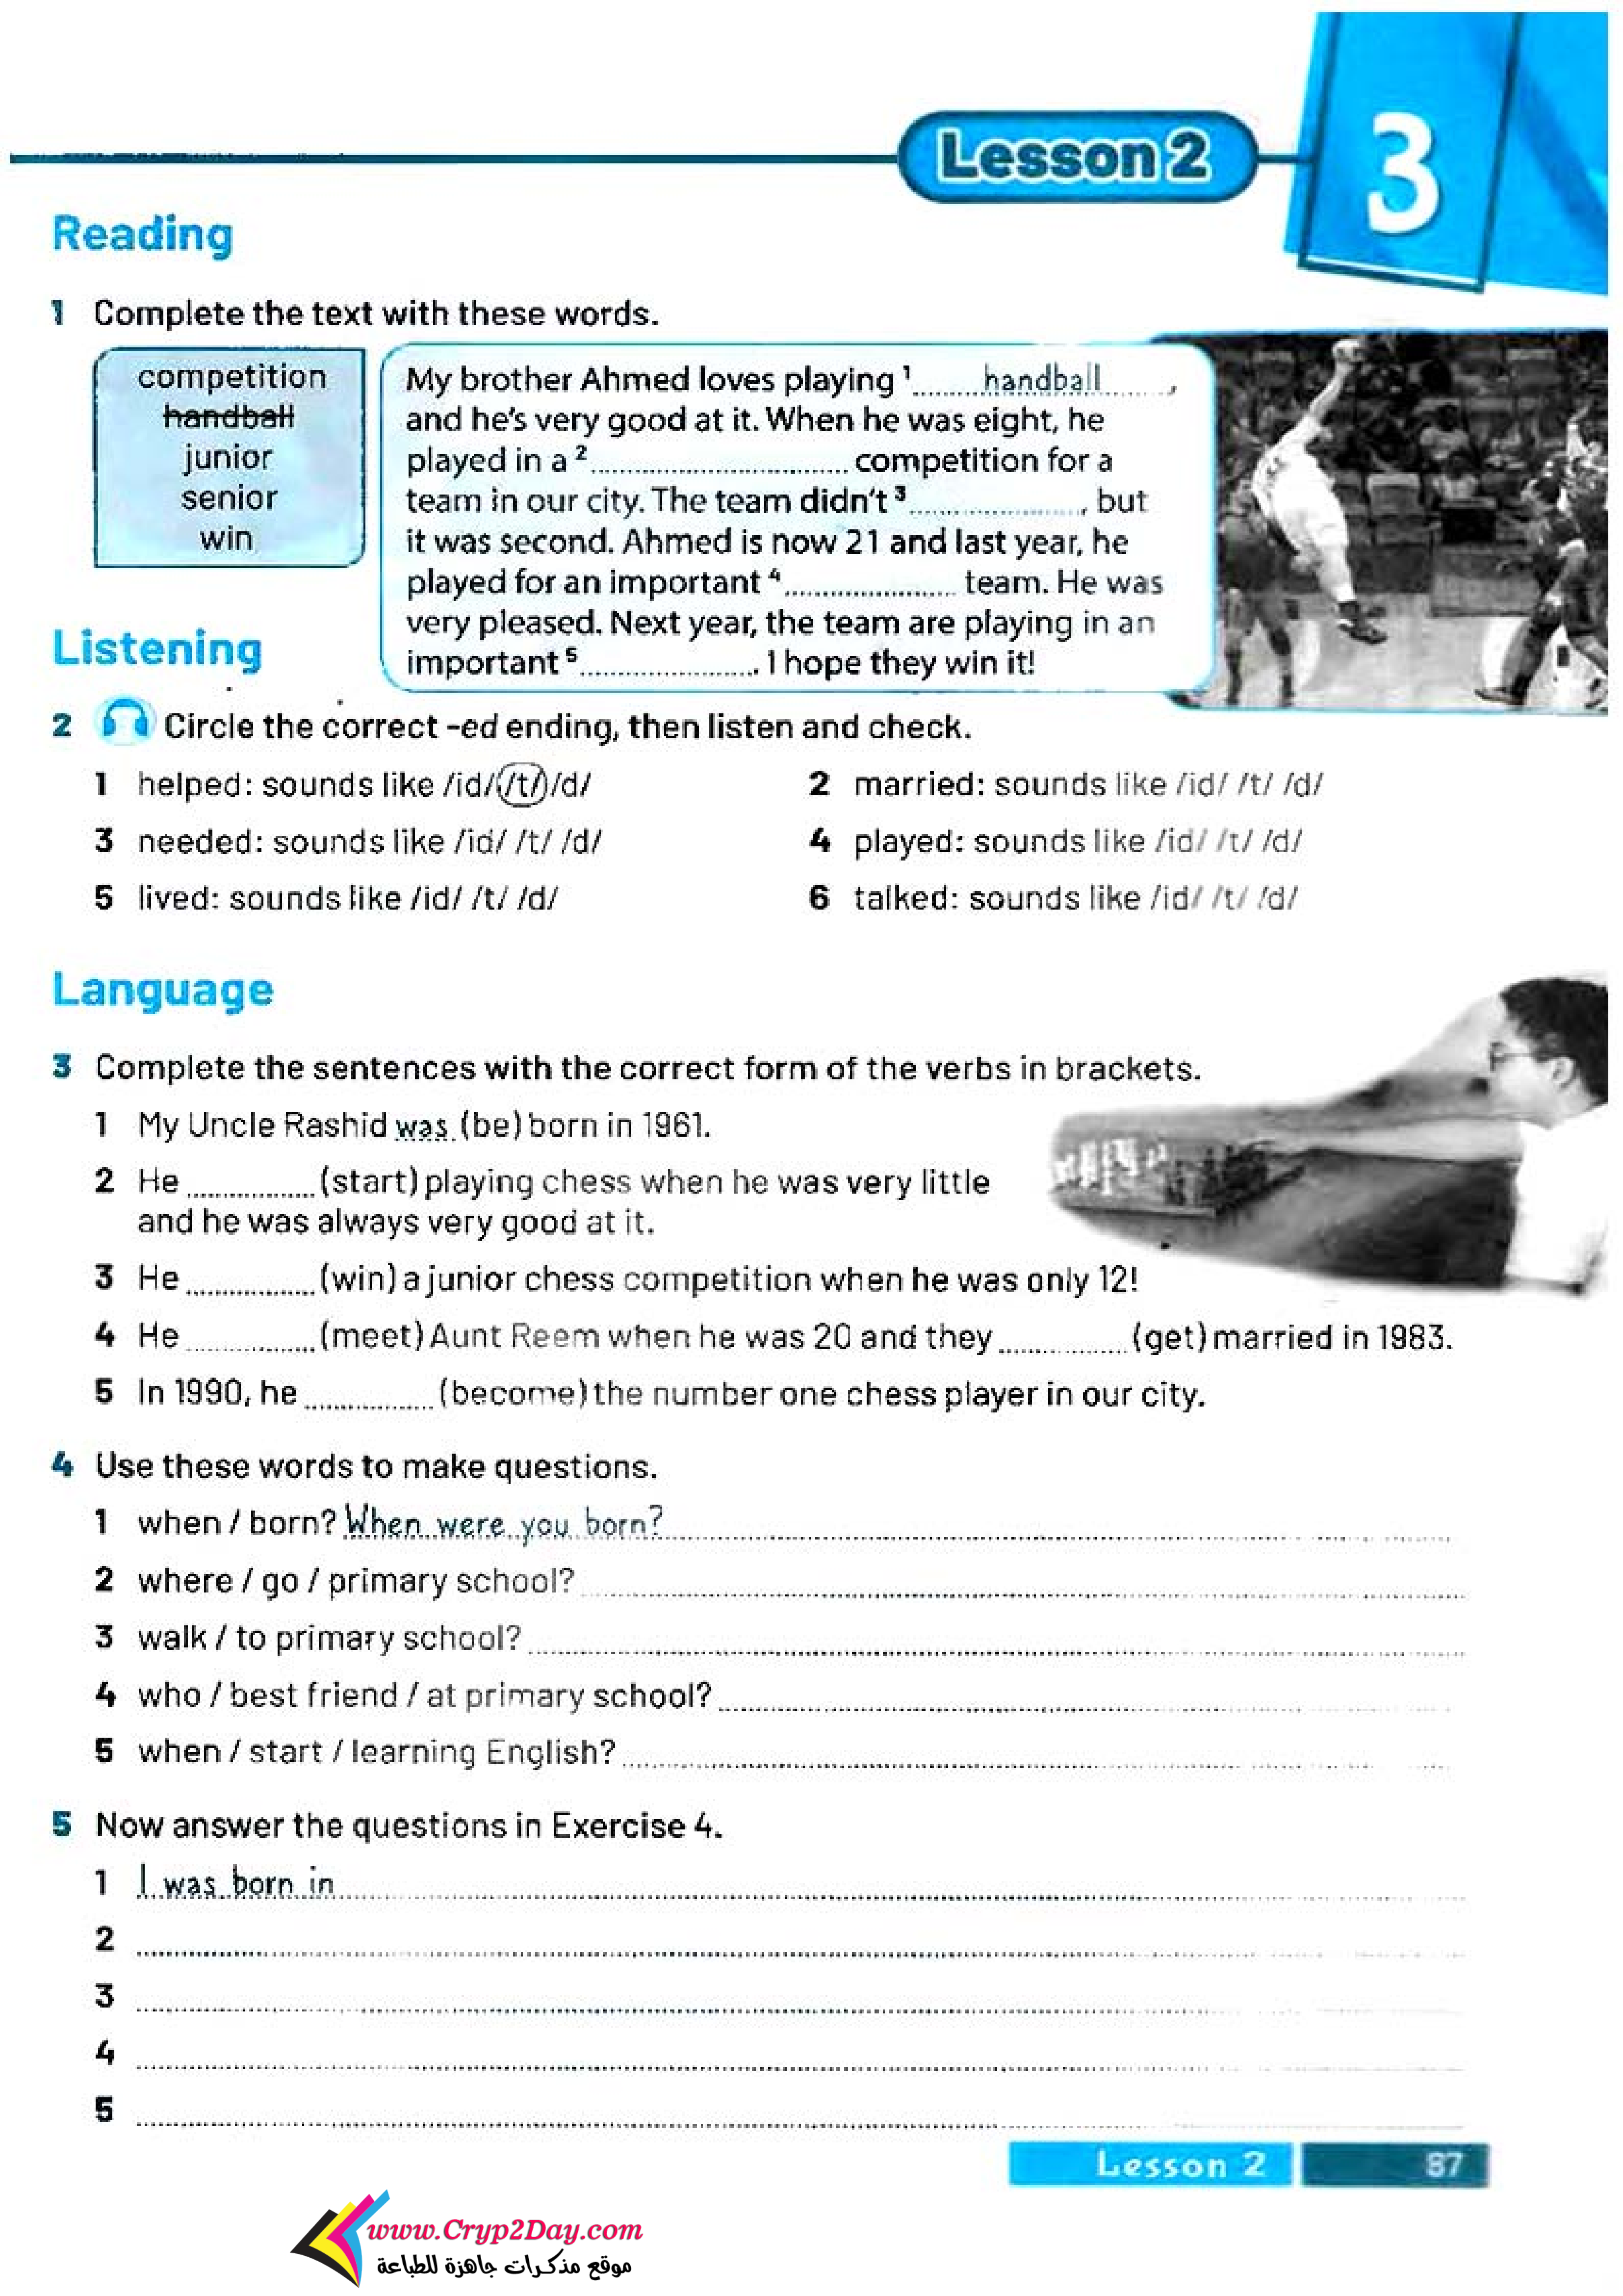 Lesson 2
3
Reading
1 Complete the text with these words.
competition
handball
junior
senior
win
My brother Ahmed loves playing ¹ handball ,
and he's very good at it. When he was eight, he
played in a ² .............................. competition for a
team in our city. The team didn't ³ ...................., but
it was second. Ahmed is now 21 and last year, he
played for an important ⁴ .................... team. He was
very pleased. Next year, the team are playing in an
important ⁵ ..................... I hope they win it!
Listening
2 Circle the correct -ed ending, then listen and check.
1 helped: sounds like /id/ /t/ /d/
2 married: sounds like /id/ /t/ /d/
3 needed: sounds like /id/ /t/ /d/
4 played: sounds like /id/ /t/ /d/
5 lived: sounds like /id/ /t/ /d/
6 talked: sounds like /id/ /t/ /d/
Language
3 Complete the sentences with the correct form of the verbs in brackets.
1 My Uncle Rashid was (be) born in 1961.
2 He ............... (start) playing chess when he was very little
and he was always very good at it.
3 He ............... (win) a junior chess competition when he was only 12!
4 He ............... (meet) Aunt Reem when he was 20 and they ............... (get) married in 1983.
5 In 1990, he ............... (become) the number one chess player in our city.
4 Use these words to make questions.
1 when / born? When were you born?
2 where / go / primary school?
3 walk / to primary school?
4 who / best friend / at primary school?
5 when / start / learning English?
5 Now answer the questions in Exercise 4.
1 I was born in
2
3
4
5
Lesson 2 87
www.Cryp2Day.com
موقع مذكرات جاهزة للطباعة